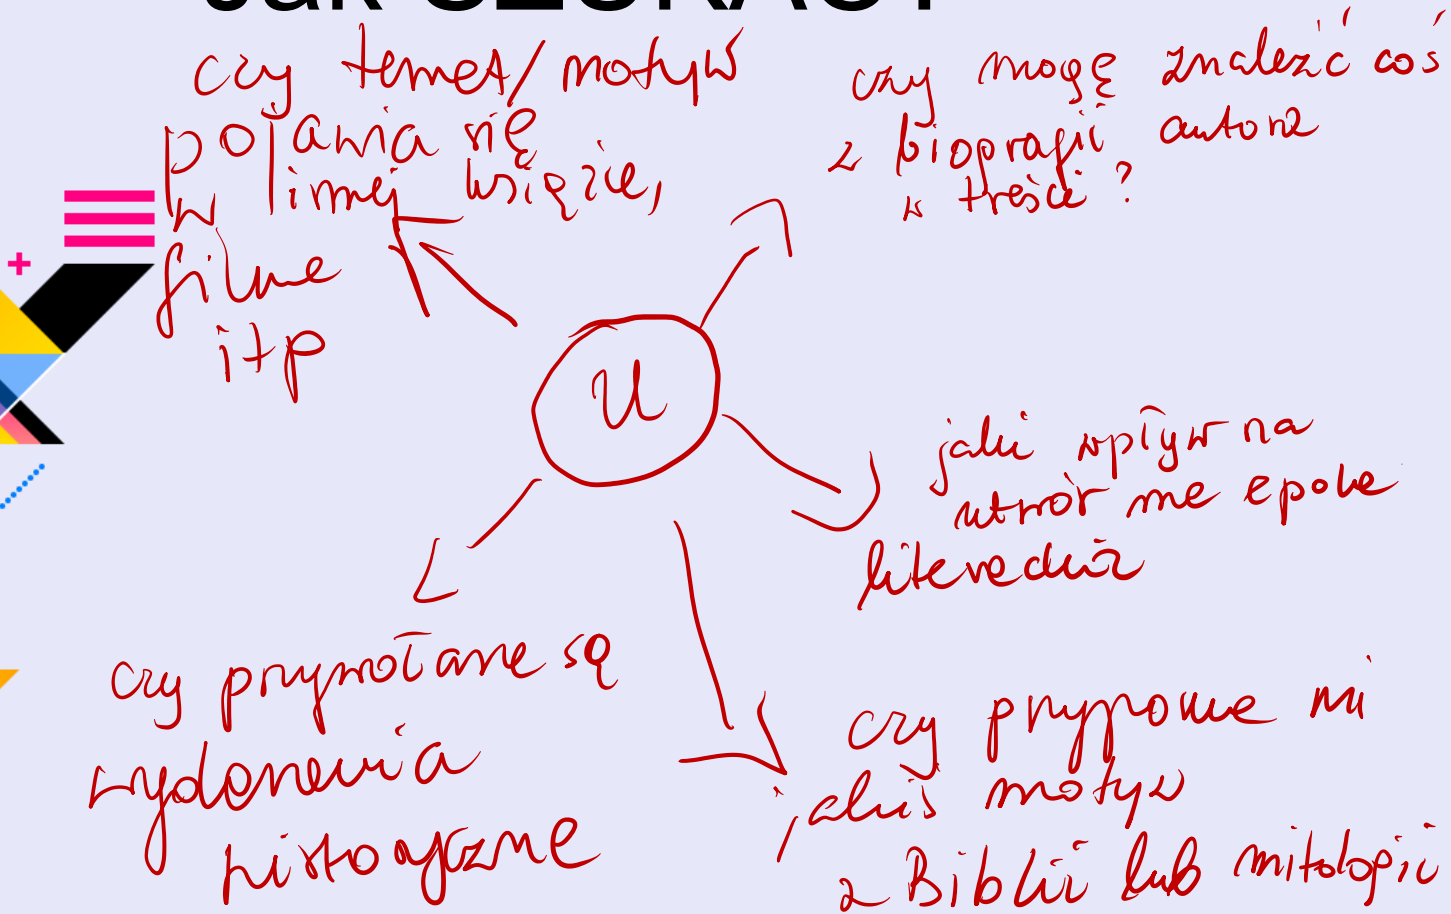 Jak SZUKAĆ?
czy temat/motyw
pojawia się
w innej książce,
filmie
itp
czy mogę znaleźć coś
z biografii autora
w treści?
U
jaki wpływ na
utwór ma epoka
literacka
czy przywołane są
wydarzenia
historyczne
czy przypomina mi
jakiś motyw
z Biblii lub mitologii